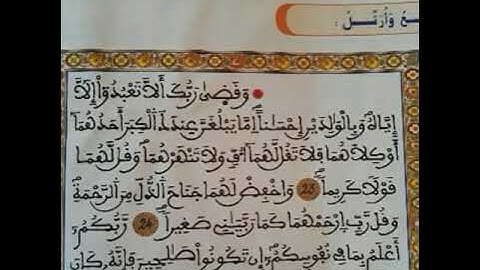 ـعُ وَأُرَتِّلُ :
وَقَضَىٰ رَبُّكَ أَلَّا تَعْبُدُوٓاْ إِلَّآ
إِيَّاهُ وَبِالْوَٰلِدَيْنِ إِحْسَٰناً اِمَّا يَبْلُغَنَّ عِندَكَ اَلْكِبَرَ أَحَدُهُمَآ
أَوْ كِلَٰهُمَا فَلَا تَقُل لَّهُمَآ أُفٍّ وَلَا تَنْهَرْهُمَا وَقُل لَّهُمَا
قَوْلاً كَرِيماً 23 وَاخْفِضْ لَهُمَا جَنَاحَ اَلذُّلِّ مِنَ اَلرَّحْمَةِ
وَقُل رَّبِّ اِرْحَمْهُمَا كَمَا رَبَّيَٰنِي صَغِيراً 24 رَّبُّكُمُۥٓ
أَعْلَمُ بِمَا فِي نُفُوسِكُمُۥٓ إِن تَكُونُواْ صَٰلِحِينَ فَإِنَّهُۥ كَانَ